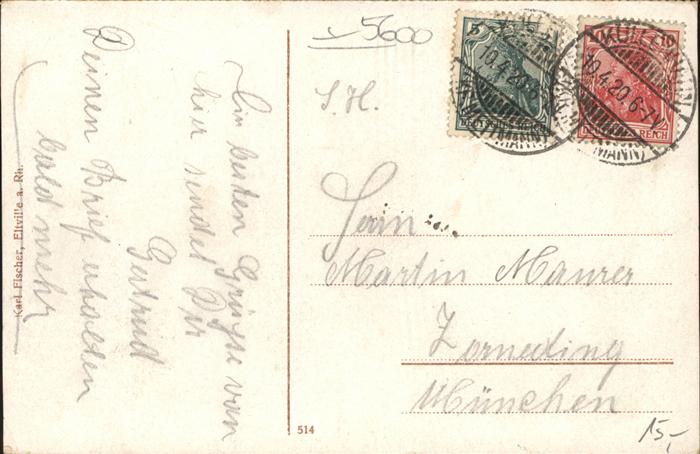 5600
S. H.
5
10
10.4.20. 6-7 V.
REICH
(METTMANN)
Herrn
Martin Maurer
Zorneding
München
Die besten Grüsse von
hier sendet Dir
Gertrud
Deinen Brief erhalten
bald mehr
Karl Fischer, Eltville a. Rh.
514
15,-